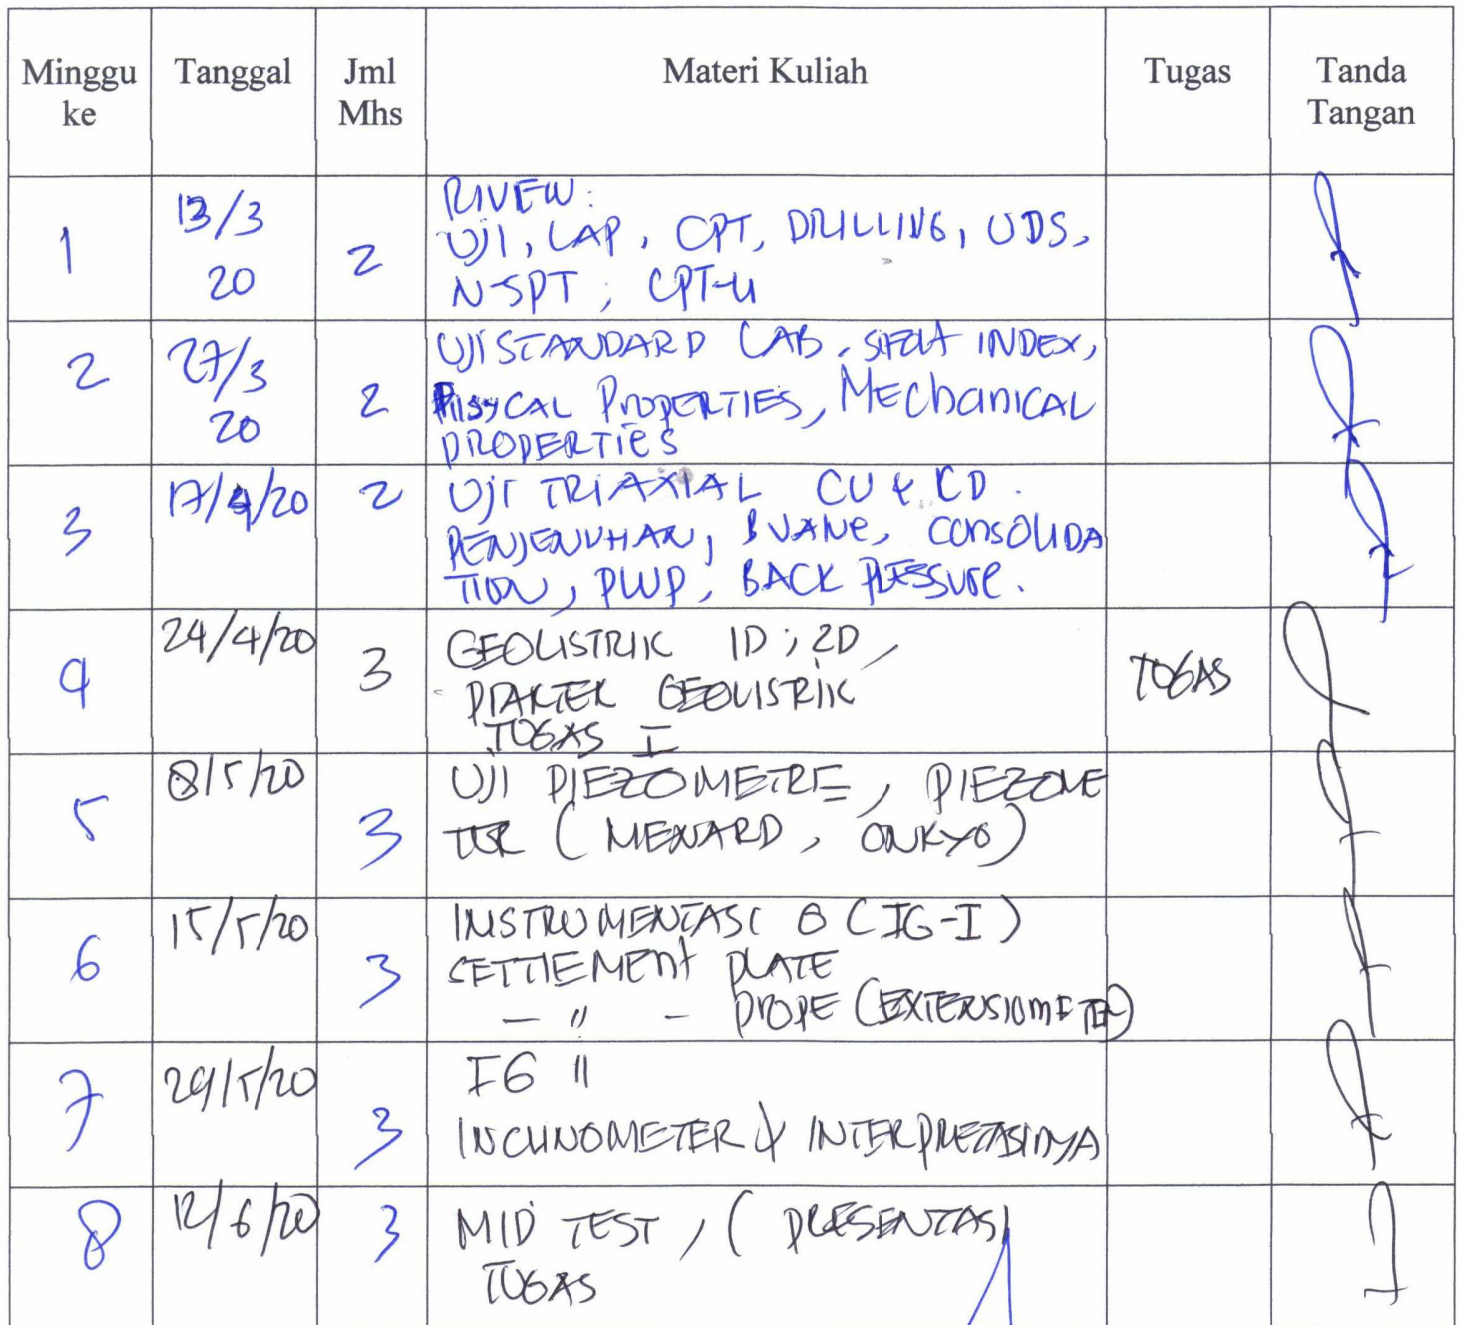 Minggu ke Tanggal Jml Mhs Materi Kuliah Tugas Tanda Tangan
1 13/3 20 2 RIVEW:
UJI, LAP, CPT, DRILLING, UDS,
N-SPT, CPT-U
2 27/3 20 2 UJI STANDARD LAB, SIFAT INDEX,
PHISYCAL PROPERTIES, MEChaNICAL
PROPERTIES
3 17/4/20 2 UJI TRIAXIAL CU & CD.
PENJENUHAN, B VANE, CONSOLIDA
TION, PWP, BACK PRESSURE.
4 24/4/20 3 GEOLISTRIK 1D; 2D, TUGAS
- PRAKTEK GEOLISTRIK
TUGAS I
5 8/5/20 3 UJI PIEZOMETRE, PIEZOME
TER (MENARD, ONKYO)
6 15/5/20 3 INSTRUMENTASI G (IG-I)
SETTLEMENT PLATE
- " - PROPE (EXTENSIOMETER)
7 29/5/20 3 IG II
INCLINOMETER & INTERPRETASINYA
8 12/6/20 3 MID TEST, (PRESENTASI
TUGAS